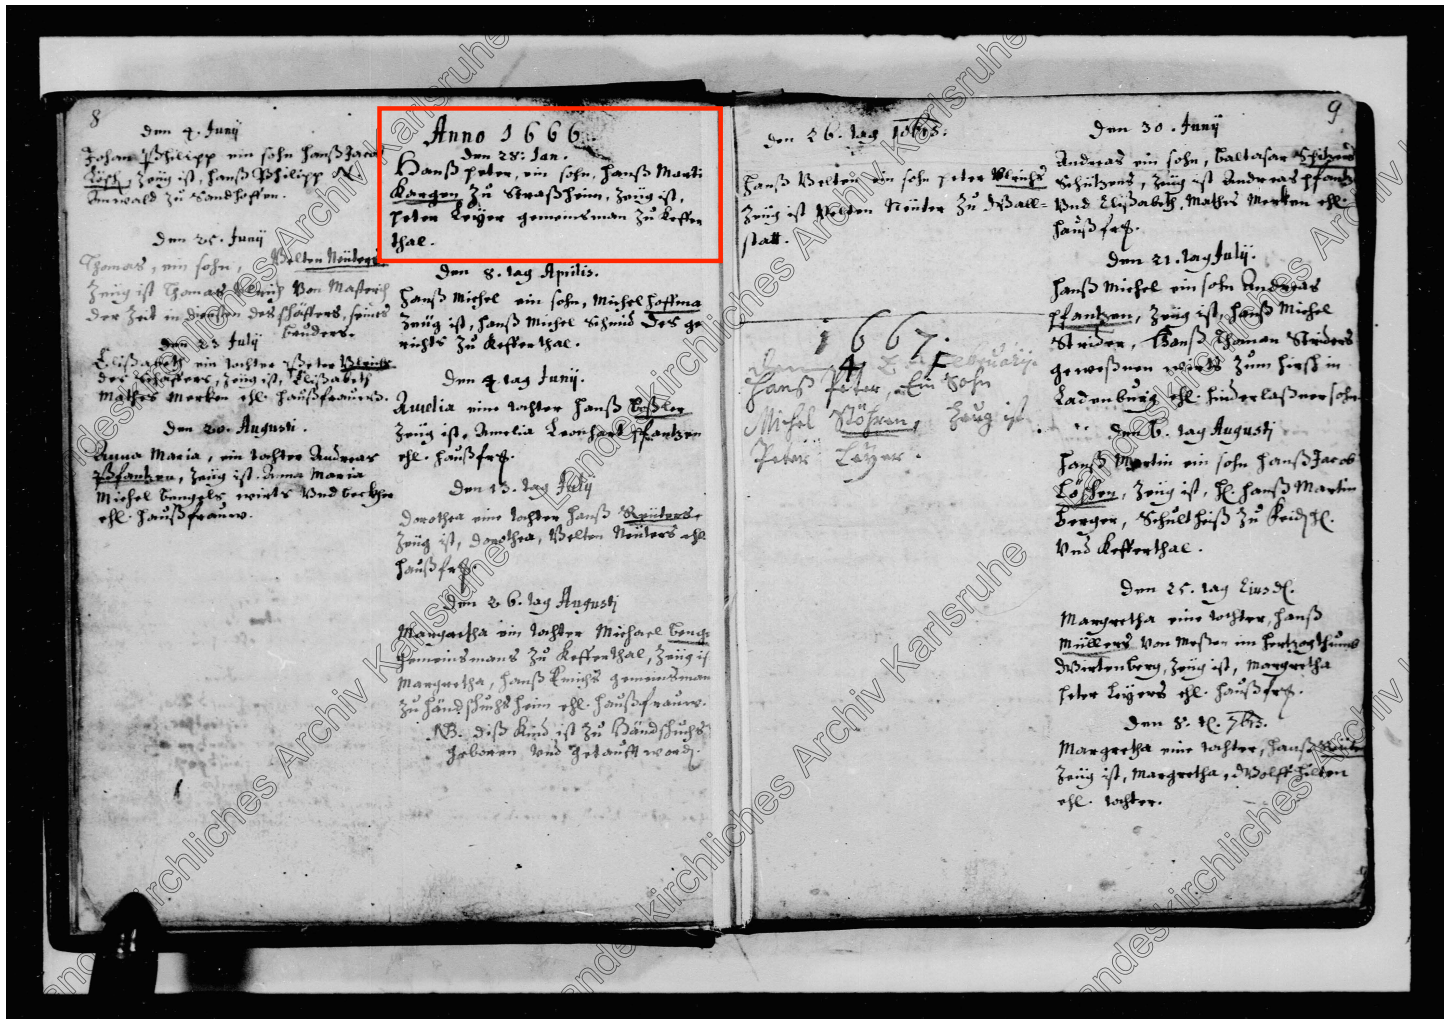 8
den 4. Junij
Johan Philipp ein sohn Hanß Jacob
Lösch, Zeüg ist, Hanß Philipp
Anwald Zu Sandhoffen.
den 25. Junij
Thomas, ein sohn, Velten Neüters
Zeüg ist Thomas Ulrich von
der Zeit in diensten des schäffers, seines
bruders.
den 23 July
Elißabeth ein tochter Peter Ulrichs
des schäffers, Zeüg ist, Elißabeth
Mathes Merken ehl. haußfrauw.
den 20. Augusti.
Anna Maria, ein tochter Andreas
Pfantzen, Zeüg ist Anna Maria
Michel bengels wirts Vnd
ehl. haußfrauw.
Anno 1666.
den 28: Jan.
Hanß peter, ein sohn, hanß Marti
Kargen Zu Straßheim, Zeüg ist,
peter Leÿer gemeinsman Zu Keffer
thal.
den 8. tag Aprilis.
hanß Michel ein sohn, Michel hoffma
Zeüg ist, hanß Michel Schmid des ge
richts Zu Kefferthal.
den 4. tag Junij.
Amelia eine tochter hanß
Zeüg ist, Amelia Leonhart Pfantzen
ehl. haußfr.
den 13. tag Julij
Dorothea eine tochter hanß Reüters
Zeüg ist, dorothea, Velten Neüters ehl
haußfr.
den 26. tag Augusti
Margartha ein tochter Michael beng
gemeinsmans Zu Kefferthal, Zeüg ist
Margretha, hanß Emichs gemeinsman
Zu händschuchsheim ehl. haußfrauw.
NB. diß Kind ist Zu Händschuchs
geboren vnd getaufft word.
den 26. tag 10bris.
hanß Velten ein sohn peter Ulrichs
Zeüg ist Velten Neüter Zu Wall=
statt.
1667.
den 4 Februarij.
Hanß Peter, Ein Sohn
Michel Stöhren, Zeug ist
Peter Leÿer.
9
den 30. Junij
Andreas ein sohn, baltasar
Schützens, Zeüg ist Andreas pfantz
Vnd Elißabeth, Mathes Merken ehl.
haußfr.
den 21. tag July.
hanß Michel ein sohn Andreas
pfantzen, Zeüg ist, hanß Michel
Strider, Hanß Thoman Striders
geweßnen wirts Zum hirsch in
Ladenburg ehl. hinderlaßner sohn
den 6. tag Augusti
hanß Martin ein sohn hanß Jacob
Löschen, Zeüg ist, H. hanß Martin
berger, Schultheiß Zu
Vnd Kefferthal.
den 25. tag Eiusd.
Margretha eine tochter, hanß
Müllers Von Meßen im hertzogthumb
Wirtenberg, Zeüg ist, Margretha
peter Leÿers ehl. haußfr.
den 8. t. 7bris.
Margretha eine tochter, hanß
Zeüg ist, Margretha, Wolff
ehl. tochter.
Landeskirchliches Archiv Karlsruhe